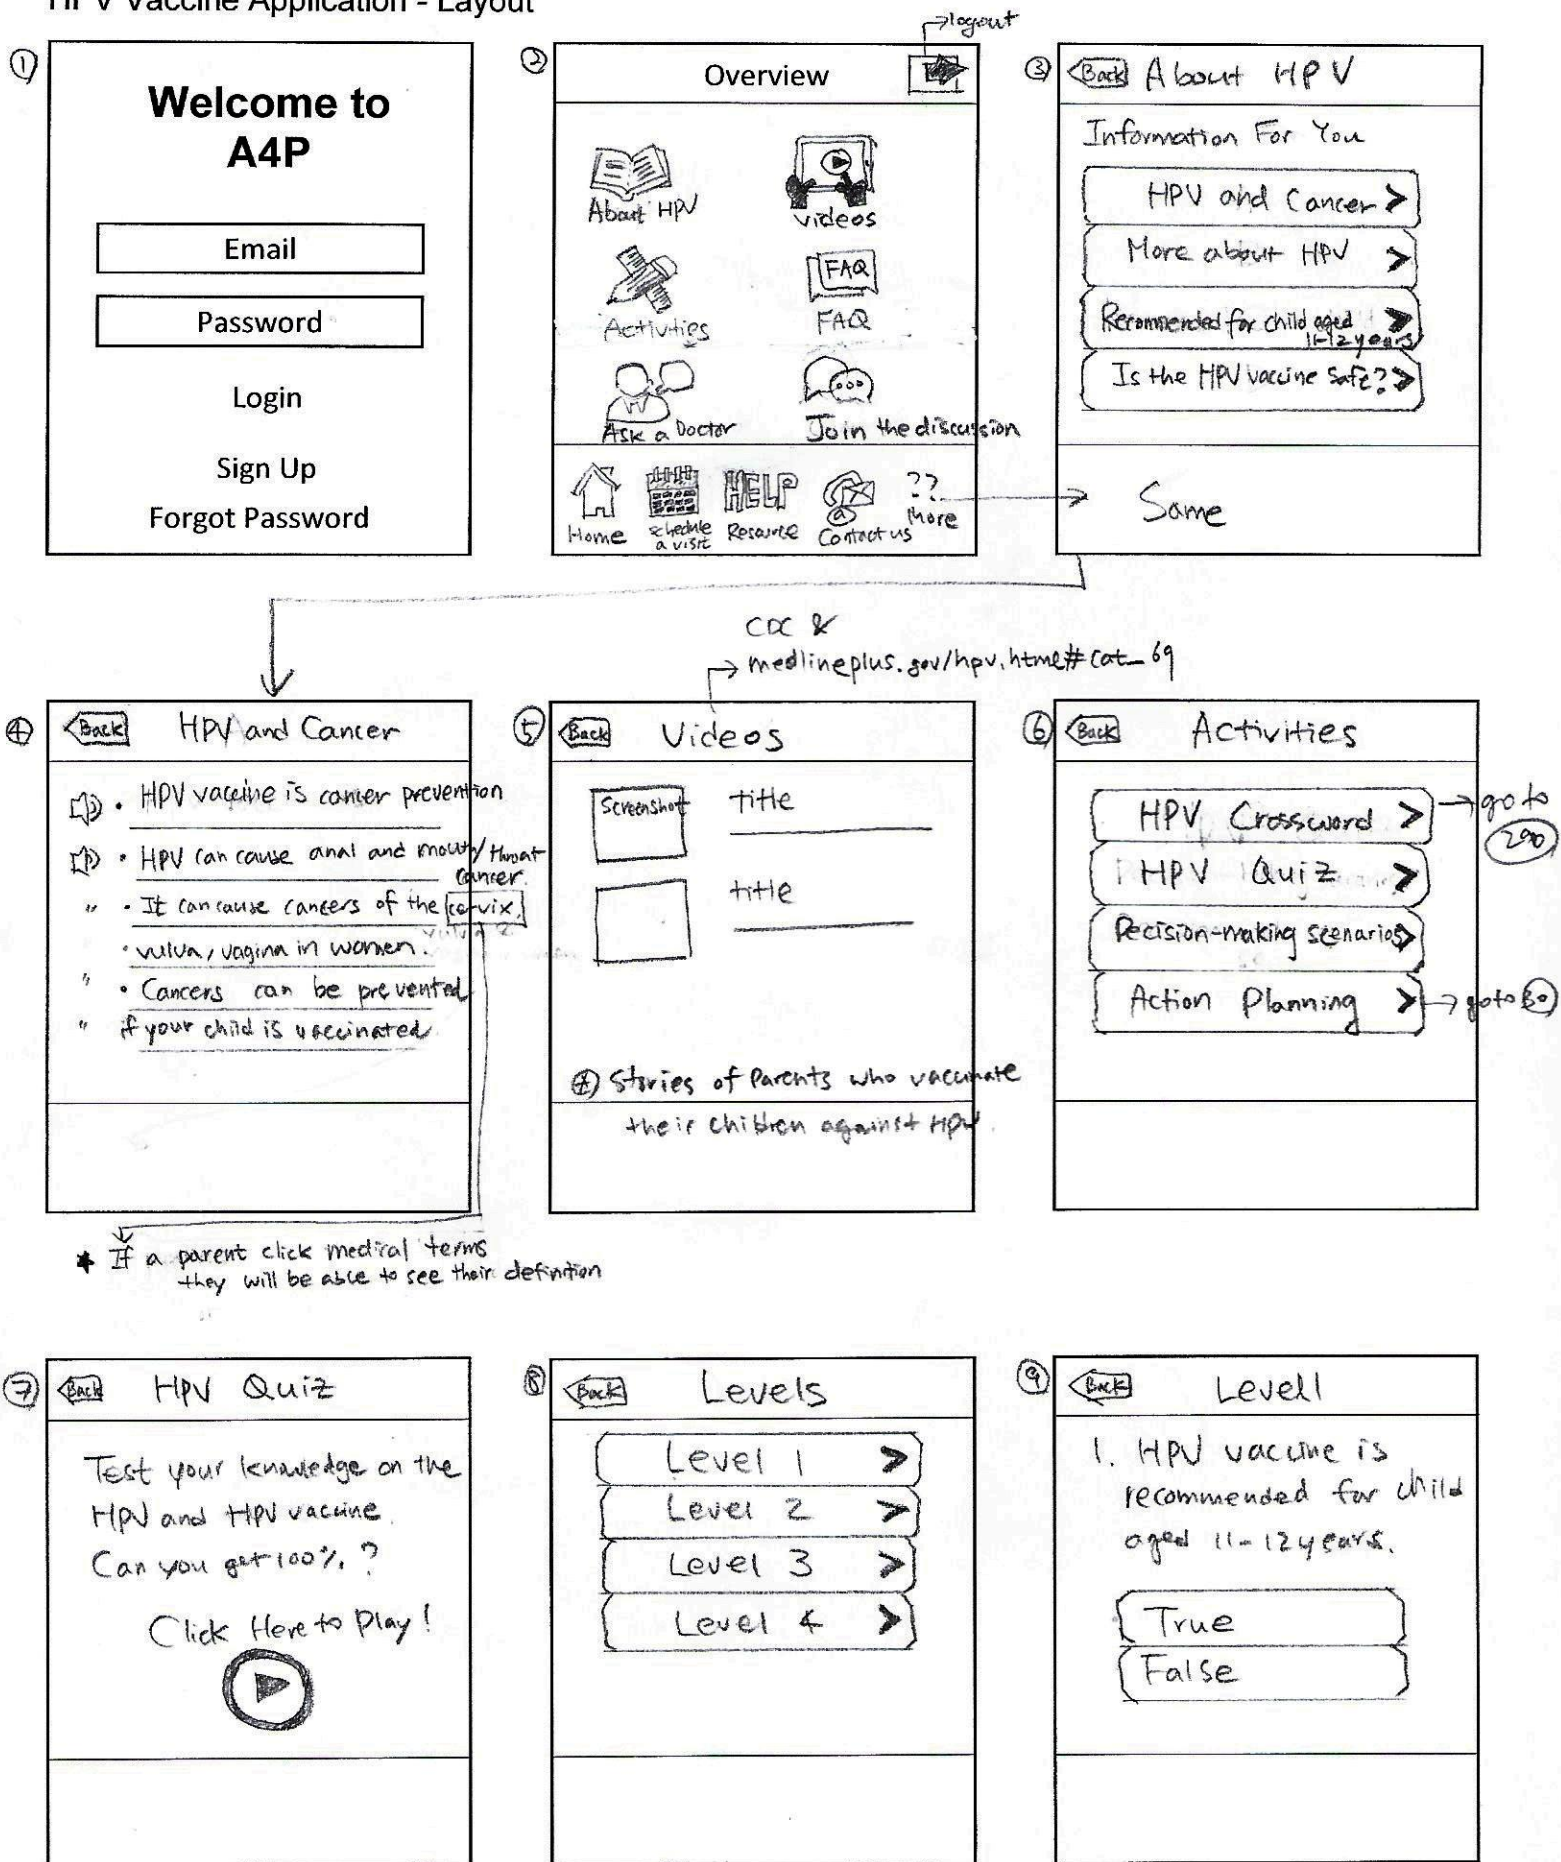 HPV Vaccine Application - Layout
①
Welcome to
A4P
Email
Password
Login
Sign Up
Forgot Password
②
logout
Overview
About HPV
videos
Activities
FAQ
FAQ
Ask a Doctor
Join the discussion
Home
schedule
a visit
HELP
Resource
@
Contact us
??
More
③
Back About HPV
Information For You
HPV and Cancer >
More about HPV >
Recommended for child aged >
11-12 years
Is the HPV vaccine safe? >
Same
④
Back HPV and Cancer
• HPV vaccine is cancer prevention
• HPV can cause anal and mouth/throat
cancer.
" • It can cause cancers of the cervix.
• vulva, vagina in women.
" • Cancers can be prevented
" if your child is vaccinated
* If a parent click medical terms
they will be able to see their definition
CDC &
medlineplus.gov/hpv.html#cat_69
⑤
Back Videos
Screenshot
title
title
Stories of Parents who vaccinate
their children against HPV.
⑥
Back Activities
HPV Crossword > → go to
HPV Quiz >
Decision-making scenarios >
Action Planning > → go to
⑦
Back HPV Quiz
Test your knowledge on the
HPV and HPV vaccine.
Can you get 100%?
Click Here to Play!
⑧
Back Levels
Level 1 >
Level 2 >
Level 3 >
Level 4 >
⑨
Back Level1
1. HPV vaccine is
recommended for child
aged 11-12 years.
True
False